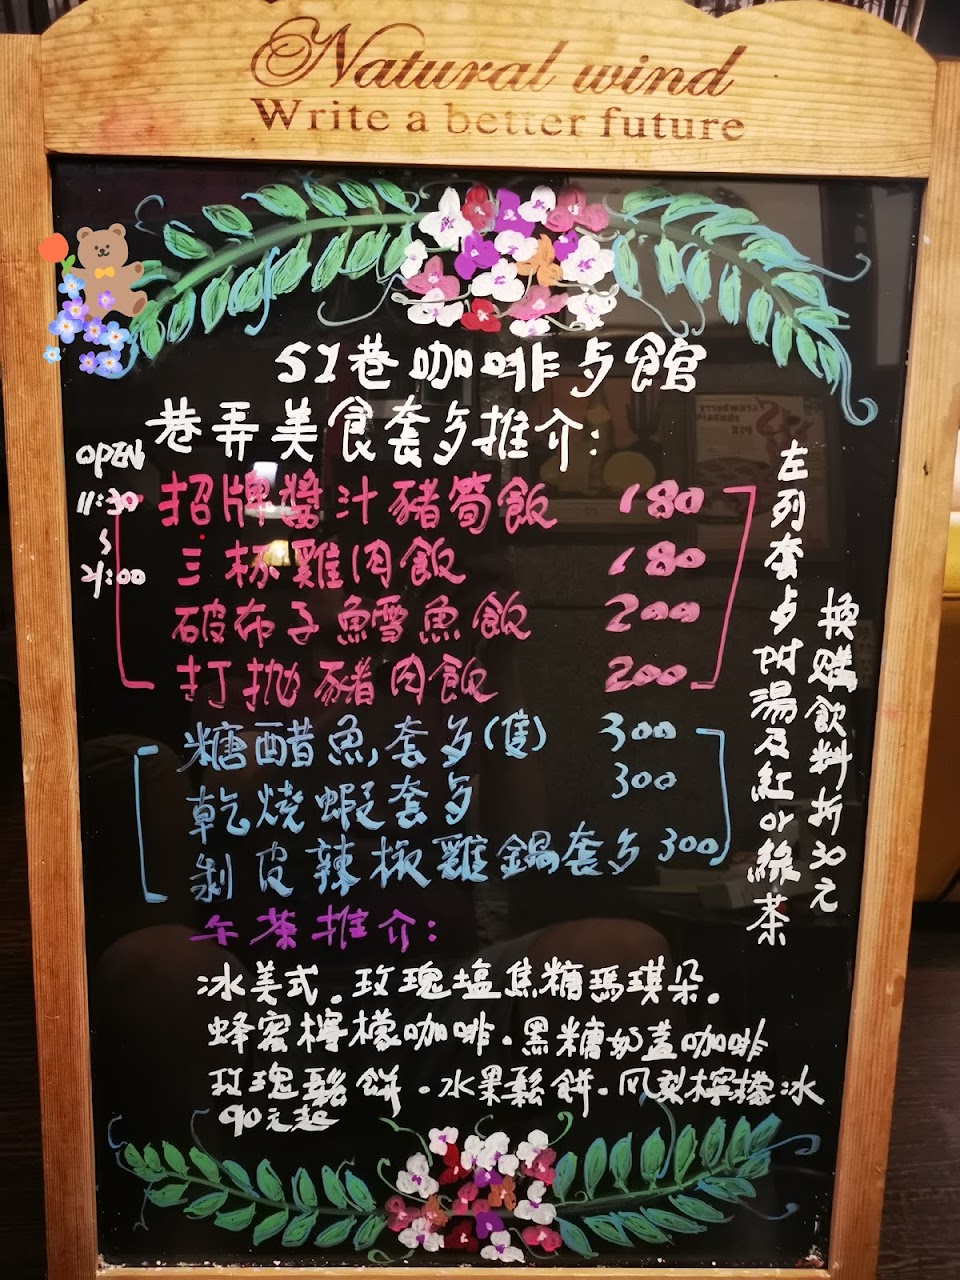 Natural wind
Write a better future
51巷咖啡与館
巷弄美食套夕推介:
OPEN
11:30
~
21:00
招牌醬汁豬筍飯 180
三杯雞肉飯 180
破布子鱈魚飯 200
打拋豬肉飯 200
糖醋魚套夕(隻) 300
乾燒蝦套夕 300
剝皮辣椒雞鍋套夕 300
左列套夕附湯及紅or綠茶
換購飲料折30元
午茶推介:
冰美式。玫瑰塩焦糖瑪琪朵。
蜂蜜檸檬咖啡。黑糖奶蓋咖啡
玫瑰鬆餅。水果鬆餅。风梨檸檬冰
90元起